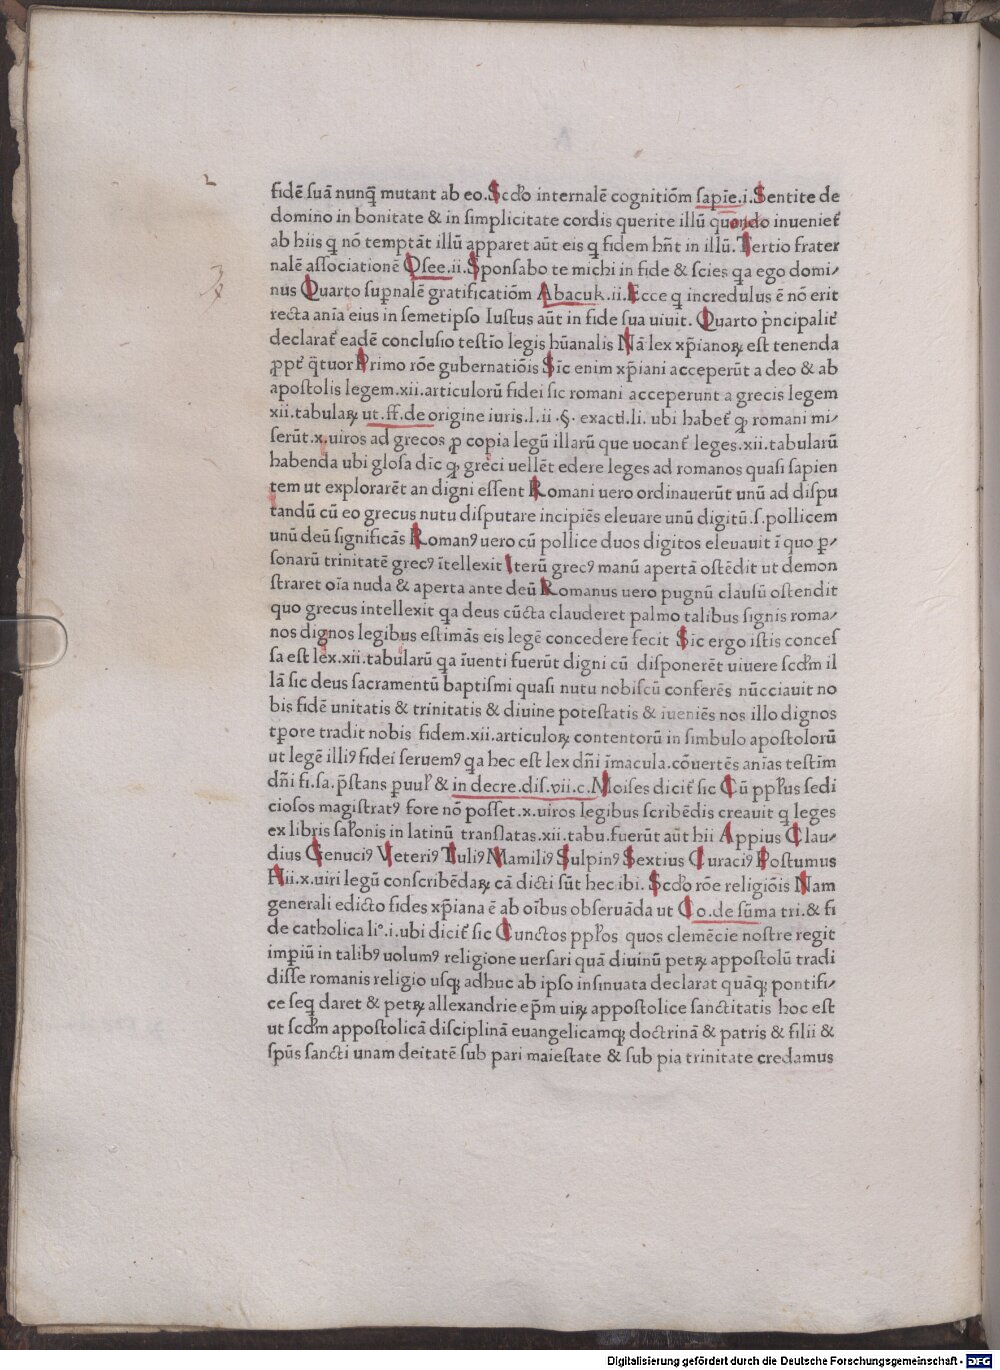 fidē ſuā nunq̄ mutant ab eo.Scd̓o internalē cognitiōm ſapīe.i.Sentite de
domino in bonitate & in ſimplicitate cordis querite illū quondo inueniet̄
ab hiis q̄ nō temptāt illū apparet aūt eis q̄ fidem hn̄t in illū.Tertio frater
nalē aſſociationē Oſee.ii.Sponſabo te michi in fide & ſcies qa ego domi/
nus Quarto ſuꝑnalē gratificatiōm Abacuk.ii.Ecce q̄ incredulus ē nō erit
recta aīa eius in ſemetipſo Iuſtus aūt in fide ſua uiuit. Quarto p̄ncipalit̄
declarat̄ eadē concluſio teſtīo legis hūanalis Nā lex xp̄ianoꝝ eſt tenenda
ꝓpt̄ q̄tuor Primo rōe gubernatiōis Sic enim xp̄iani acceperūt a deo & ab
apoſtolis legem.xii.articulorū fidei ſic romani acceperunt a grecis legem
xii.tabulaꝝ ut.ff.de origine iuris.l.ii.§. exacti.li. ubi habet̄ ꝙ romani mi/
ſerūt.x.uiros ad grecos ꝓ copia legū illarū que uocant̄ leges.xii.tabularū
habenda ubi gloſa dīc ꝙ greci uellēt edere leges ad romanos quaſi ſapien
tem ut explorarēt an digni eſſent Romani uero ordinauerūt unū ad diſpu
tandū cū eo grecus nutu diſputare incipiēs eleuare unū digitū.ſ.pollicem
unū deū ſignificās Romanꝰ uero cū pollice duos digitos eleuauit ī quo ꝑ/
ſonarū trinitatē grecꝰ ītellexit Iterū grecꝰ manū apertā oſtēdit ut demon
ſtraret oīa nuda & aperta ante deū Romanus uero pugnū clauſū oſtendit
quo grecus intellexit qa deus cūcta clauderet palmo talibus ſignis roma/
nos dignos legibus eſtimās eis legē concedere fecit Sic ergo iſtis conceſ
ſa eſt lex.xii.tabularū qa īuenti fuerūt digni cū diſponerēt uiuere ſcd̄m il
lā ſic deus ſacramentū baptiſmi quaſi nutu nobiſcū conferēs nūcciauit no
bis fidē unitatis & trinitatis & diuine poteſtatis & iueniēs nos illo dignos
tꝑore tradit nobis fidem.xii.articuloꝝ contentorū in ſimbulo apoſtolorū
ut legē illiꝰ fidei ſeruemꝰ qa hec eſt lex dn̄i īmacula.cōuertēs anīas teſtīm
dn̄i fi.ſa.p̄ſtans ꝑuul̓ & in decre.diſ.vii.c.Moiſes dicit̄ ſic Cū pp̄l̓us ſedi
cioſos magiſtratꝰ fore nō poſſet.x.uiros legibus ſcribēdis creauit q̄ leges
ex libris ſal̓onis in latinū translatas.xii.tabu.fuerūt aūt hii Appius Clau/
dius Genuciꝰ Veteriꝰ Tuliꝰ Mamiliꝰ Sulpinꝰ Sextius Curaciꝰ Poſtumus
Hii.x.uiri legū conſcribēdaꝝ cā dicti ſūt hec ibi. Scd̓o rōe religiōis Nam
generali edicto fides xp̄iana ē ab oībus obſeruāda ut Co.de ſūma tri.& fi
de catholica li°.i.ubi dicit̄ ſic Cunctos pp̄l̓os quos clemēcie noſtre regit
imꝑiū in talibꝰ uolumꝰ religione uerſari quā diuinū petꝝ appoſtolū tradi
diſſe romanis religio uſqꝫ adhuc ab ipſo inſinuata declarat quāqꝫ pontifi/
ce ſeq̄ daret & petꝝ allexandrie ep̄m uiꝝ appoſtolice ſanctitatis hoc eſt
ut ſcd̄m appoſtolicā diſciplinā euangelicamqꝫ doctrinā & patris & filii &
ſpūs ſancti unam deitatē ſub pari maieſtate & ſub pia trinitate credamus
Digitalisierung gefördert durch die Deutsche Forschungsgemeinschaft - DFG